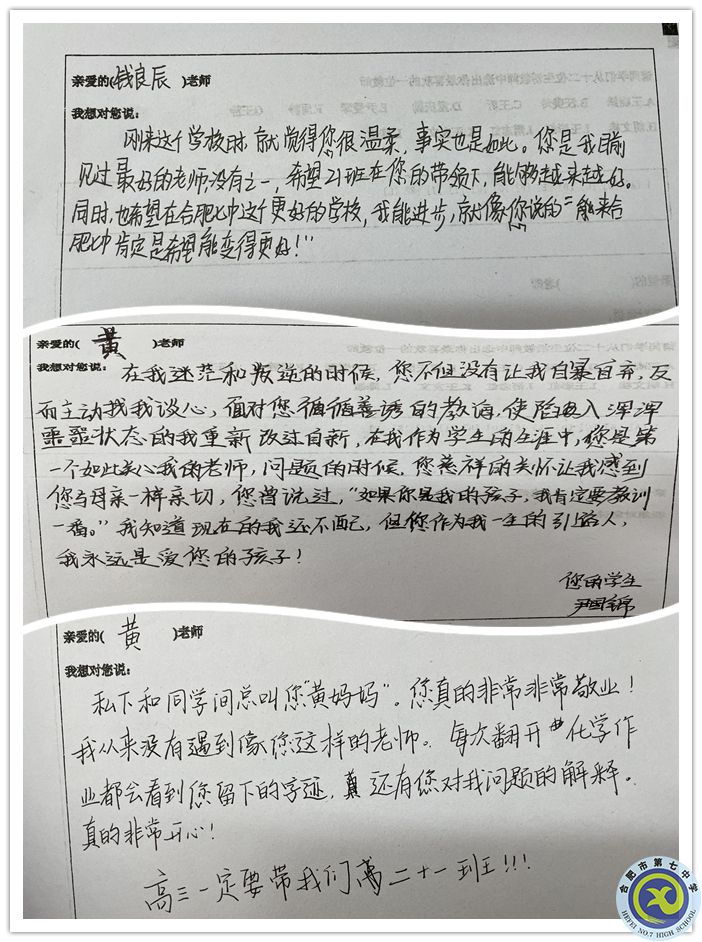 亲爱的(钱良辰 )老师
我想对您说:
刚来这个学校时,就觉得您很温柔,事实也是如此。您是我目前
见过最好的老师,没有之一,希望21班在您的带领下,能够越来越好。
同时,也希望在合肥七中这个更好的学校,我能进步,就像您说的“能来合
肥七中肯定是希望能变得更好!”
亲爱的( 黄 )老师
我想对您说:
在我迷茫和叛逆的时候,您不但没有让我自暴自弃,反
而主动找我谈心,面对您循循善诱的教诲,使陷入浑浑
噩噩状态的我重新改过自新,在我作为学生的生涯中,您是第
一个如此关心我的老师,问题的时候,您慈祥的关怀让我感到
您与母亲一样亲切,您曾说过,“如果你是我的孩子,我肯定要教训
一番。”我知道现在的我还不配,但您作为我一生的引路人,
我永远是爱您的孩子!
您的学生
尹国
亲爱的( 黄 )老师
我想对您说:
私下和同学间总叫您“黄妈妈”。您真的非常非常敬业!
我从来没有遇到像您这样的老师。每次翻开化学作
业都会看到您留下的字迹,还有您对我问题的解释。
真的非常开心!
高三一定要带我们高二十一班!!!
合肥市第七中学
HEFEI NO.7 HIGH SCHOOL